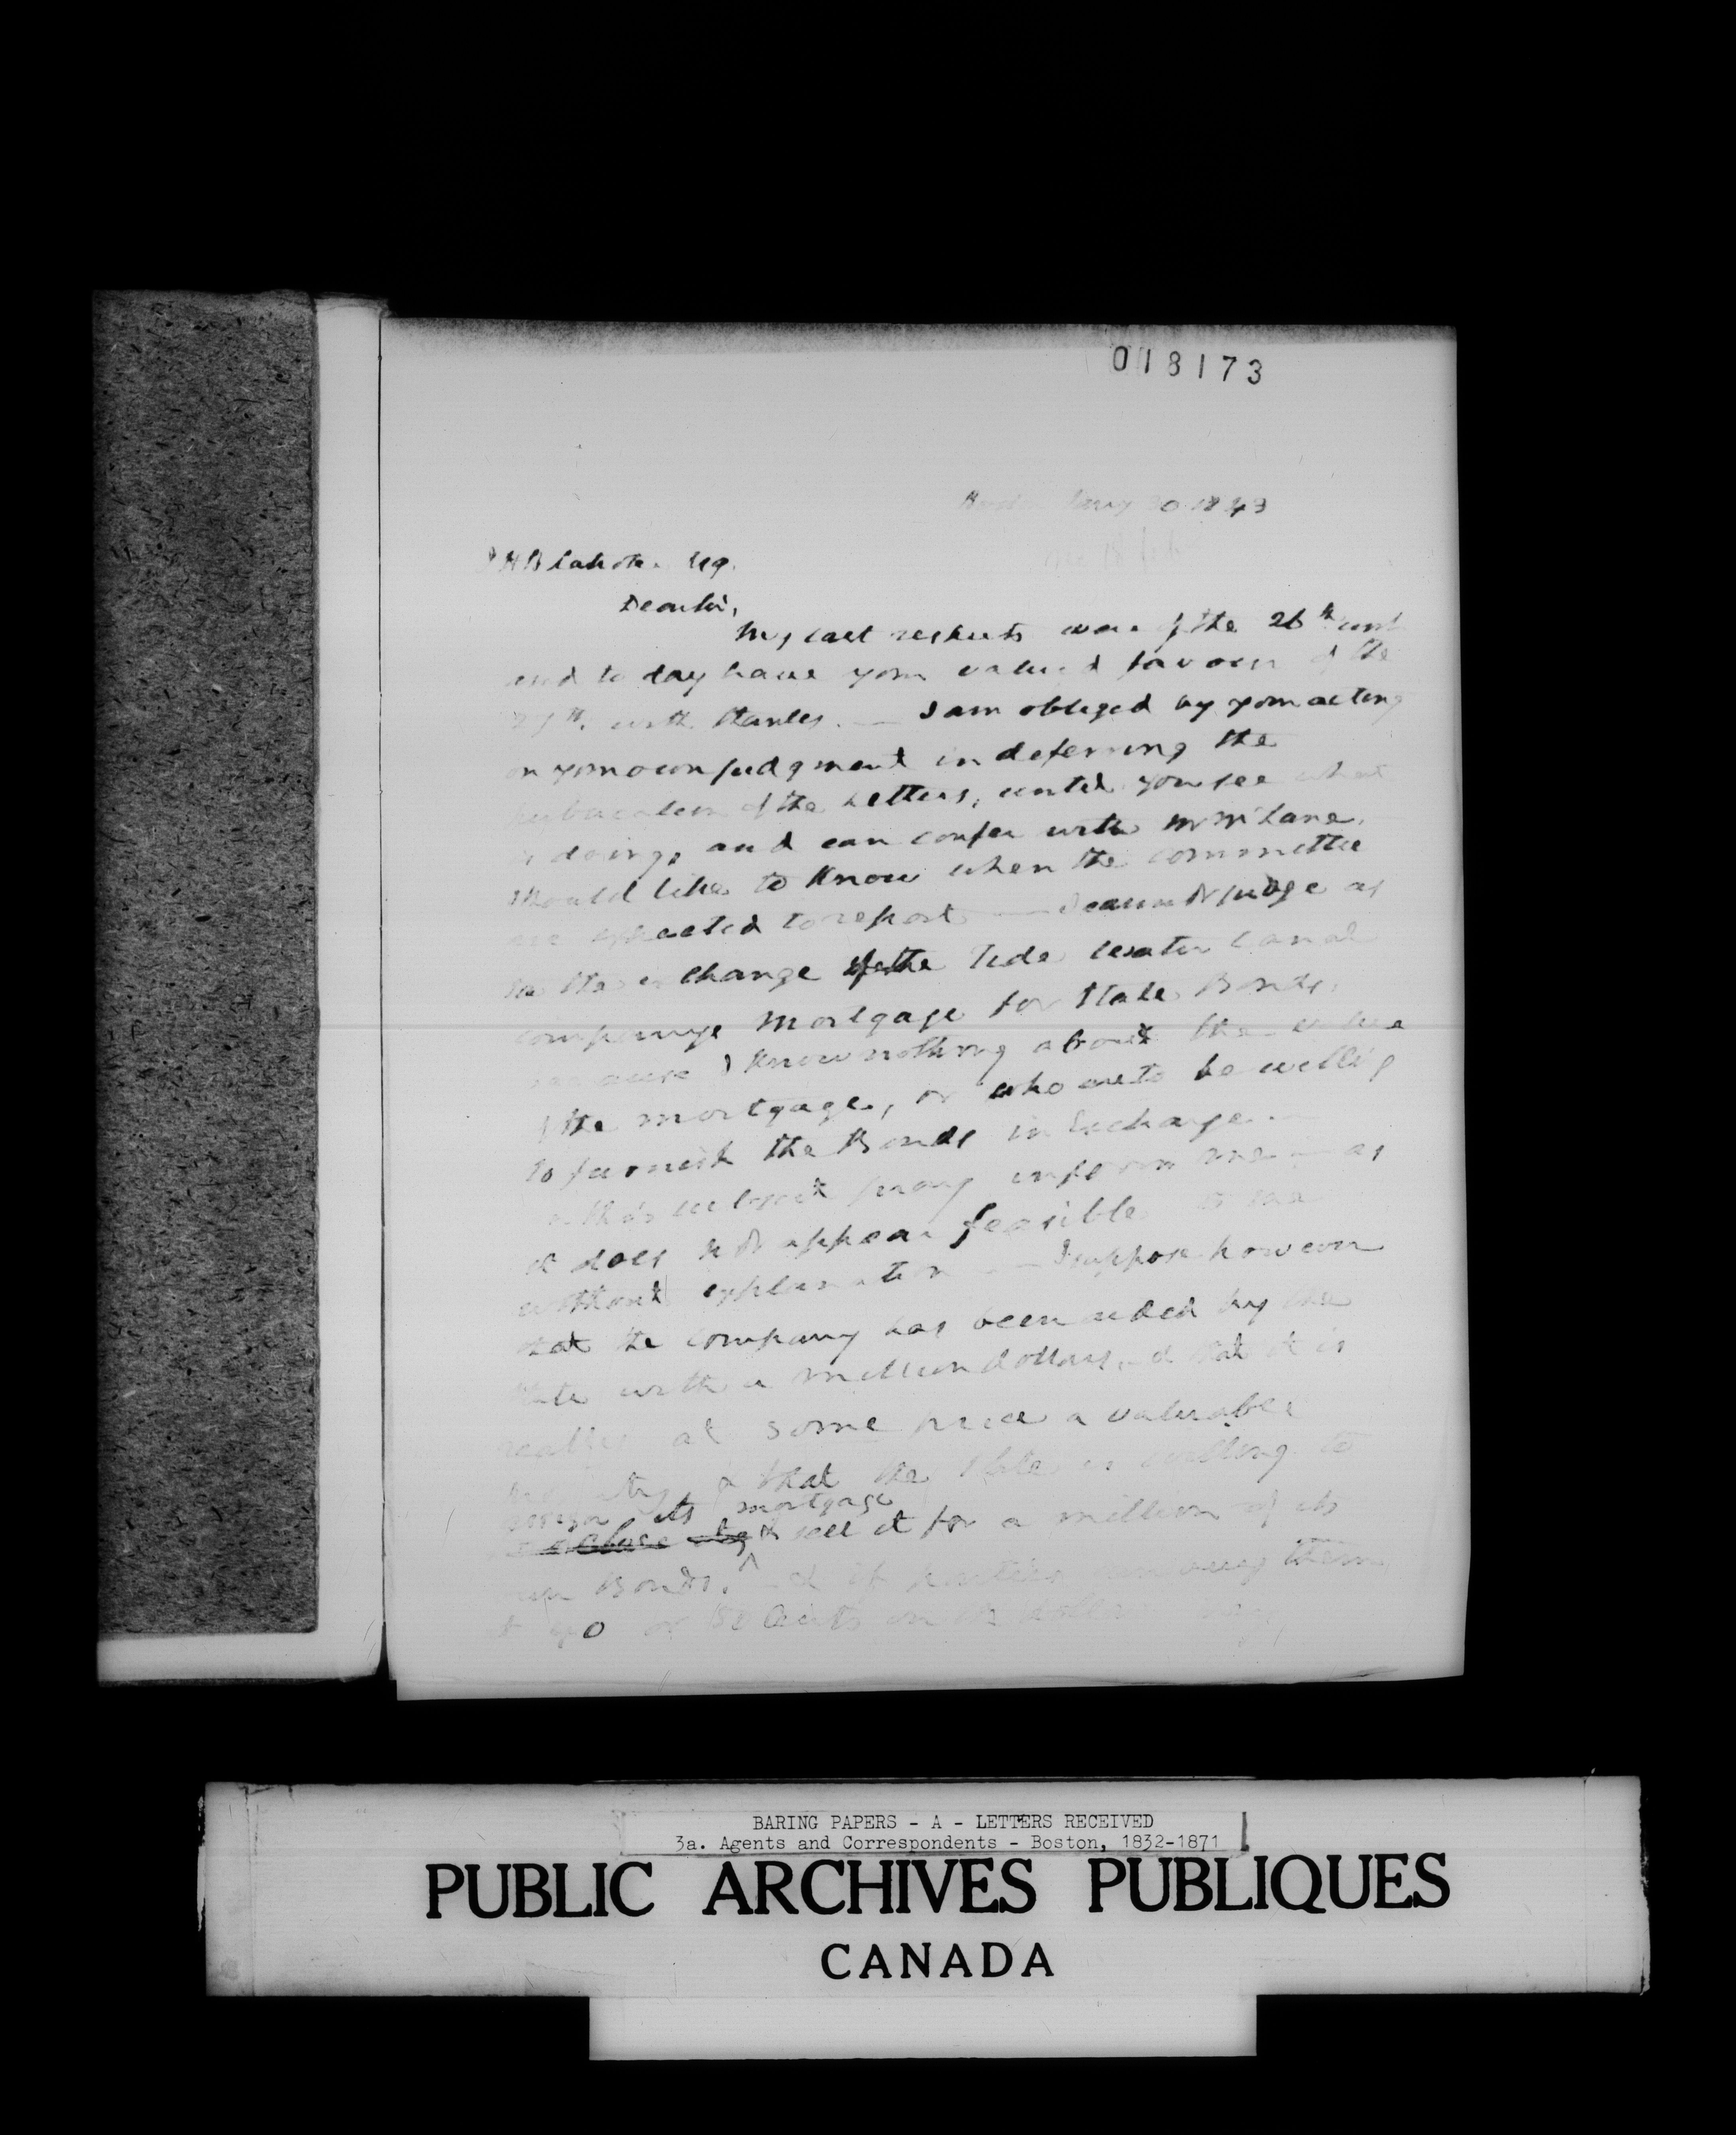 018173
Jany 30 1843
J H B Latrobe. Esq.
Dear Sir,
My last respects were of the 26th inst
and to day have your valued favour of the
27th. with thanks. — I am obliged by your acting
on your own judgment in deferring the
publication of the Letters, until you see what
is doing, and can confer with Mr McLane.
Should like to know when the committee
are expected to report — I cannot judge as
to the exchange of the Tide Water Canal
companys Mortgage for State Bonds,
because I know nothing about the value
of the mortgage, or who are to be willing
to furnish the Bonds in Exchange. —
on this subject pray inform me — as
it does not appear feasible to me
without explanation — I suppose however
that the company has been aided by the
State with a million dollars, & that it is
really at some price a valuable
property, & that the State is willing to
assign its mortgage
& sell it for a million of its
own Bonds. & if parties having them
at 40 or 50 Cents on the dollar may
BARING PAPERS - A - LETTERS RECEIVED
3a. Agents and Correspondents - Boston, 1832-1871
PUBLIC ARCHIVES PUBLIQUES
CANADA